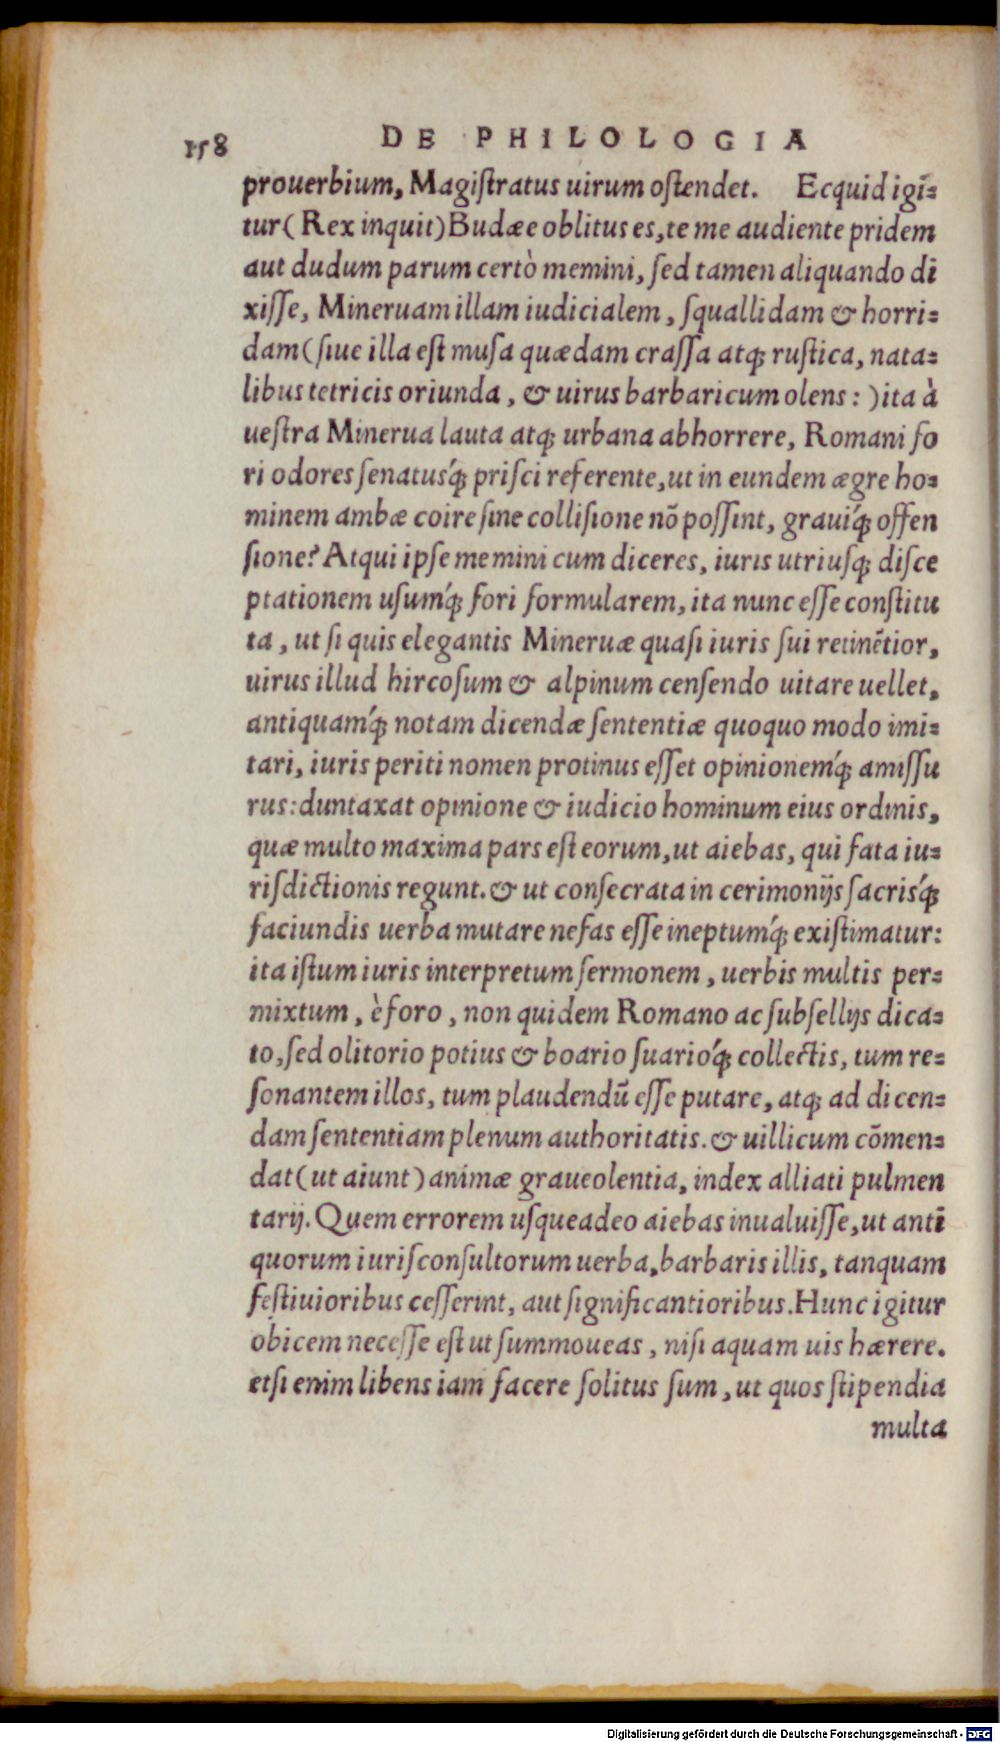 158 DE PHILOLOGIA
prouerbium, Magiſtratus uirum oſtendet. Ecquid igĩ-
tur (Rex inquit) Budæe oblitus es, te me audiente pridem
aut dudum parum certò memini, ſed tamen aliquando dĩ
xiſſe, Mineruam illam iudicialem, ſquallidam & horri-
dam (ſiue illa eſt muſa quædam craſſa atq; ruſtica, nata-
libus tetricis oriunda, & uirus barbaricum olens:) ita à
ueſtra Minerua lauta atq; urbana abhorrere, Romani fo
ri odores ſenatusq́; priſci referente, ut in eundem ægre ho-
minem ambæ coire ſine colliſione nõ poſſint, grauiq́; offen
ſione? Atqui ipſe memini cum diceres, iuris utriuſq; diſce
ptationem uſumq́; fori formularem, ita nunc eſſe conſtitu
ta, ut ſi quis elegantis Mineruæ quaſi iuris ſui retinẽtior,
uirus illud hircoſum & alpinum cenſendo uitare uellet,
antiquamq́; notam dicendæ ſententiæ quoquo modo imi-
tari, iuris periti nomen protinus eſſet opinionemq́; amiſſu
rus: duntaxat opinione & iudicio hominum eius ordinis,
quæ multo maxima pars eſt eorum, ut aiebas, qui fata iu-
riſdictionis regunt. & ut conſecrata in cerimonijs ſacrisq́;
faciundis uerba mutare nefas eſſe ineptumq́; exiſtimatur:
ita iſtum iuris interpretum ſermonem, uerbis multis per-
mixtum, è foro, non quidem Romano ac ſubſellijs dica-
to, ſed olitorio potius & boario ſuarioq́; collectis, tum re-
ſonantem illos, tum plaudendũ eſſe putare, atq; ad dicen-
dam ſententiam plenum authoritatis. & uillicum cõmen-
dat (ut aiunt) animæ graueolentia, index alliati pulmen
tarij. Quem errorem uſqueadeo aiebas inualuiſſe, ut antĩ
quorum iuriſconſultorum uerba, barbaris illis, tanquam
feſtiuioribus ceſſerint, aut ſignificantioribus. Hunc igitur
obicem neceſſe eſt ut ſummoueas, niſi aquam uis hærere.
etſi enim libens iam facere ſolitus ſum, ut quos ſtipendia
multa
Digitalisierung gefördert durch die Deutsche Forschungsgemeinschaft - DFG